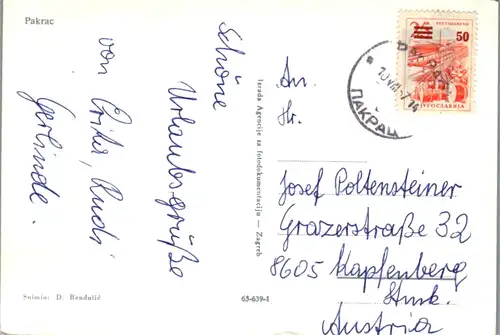 Pakrac
Schöne
Urlaubsgrüße
von Brita, Rudi
Gerlinde.
Snimio: D. Bendulić
65-639-1
Izrada Agencije za fotodokumentaciju — Zagreb
50
JUGOSLAVIJA
ПАКРАЦ
An.
Hr.
Josef Poltensteiner
Grazerstraße 32
8605 Kapfenberg
Stmk.
Austria